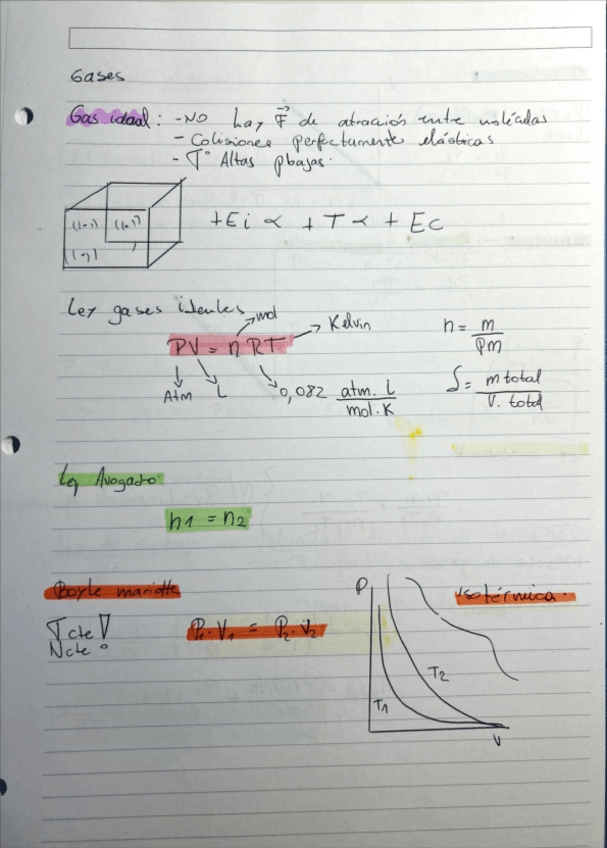 Gases
Gas ideal: - NO hay F de atracción entre moléculas
- Colisiones perfectamente elásticas
- T° Altas p bajas.
+Ei ∝ +T ∝ +Ec
Ley gases ideales
mol
Kelvin
n = m / Pm
PV = nRT
Atm
L
0,082 atm. L / mol.K
δ = m total / V. total
Ley Avogado
n1 = n2
Boyle mariotte
Isotérmica.
P
T cte
N cte
P1.V1 = P2.V2
T2
T1
V